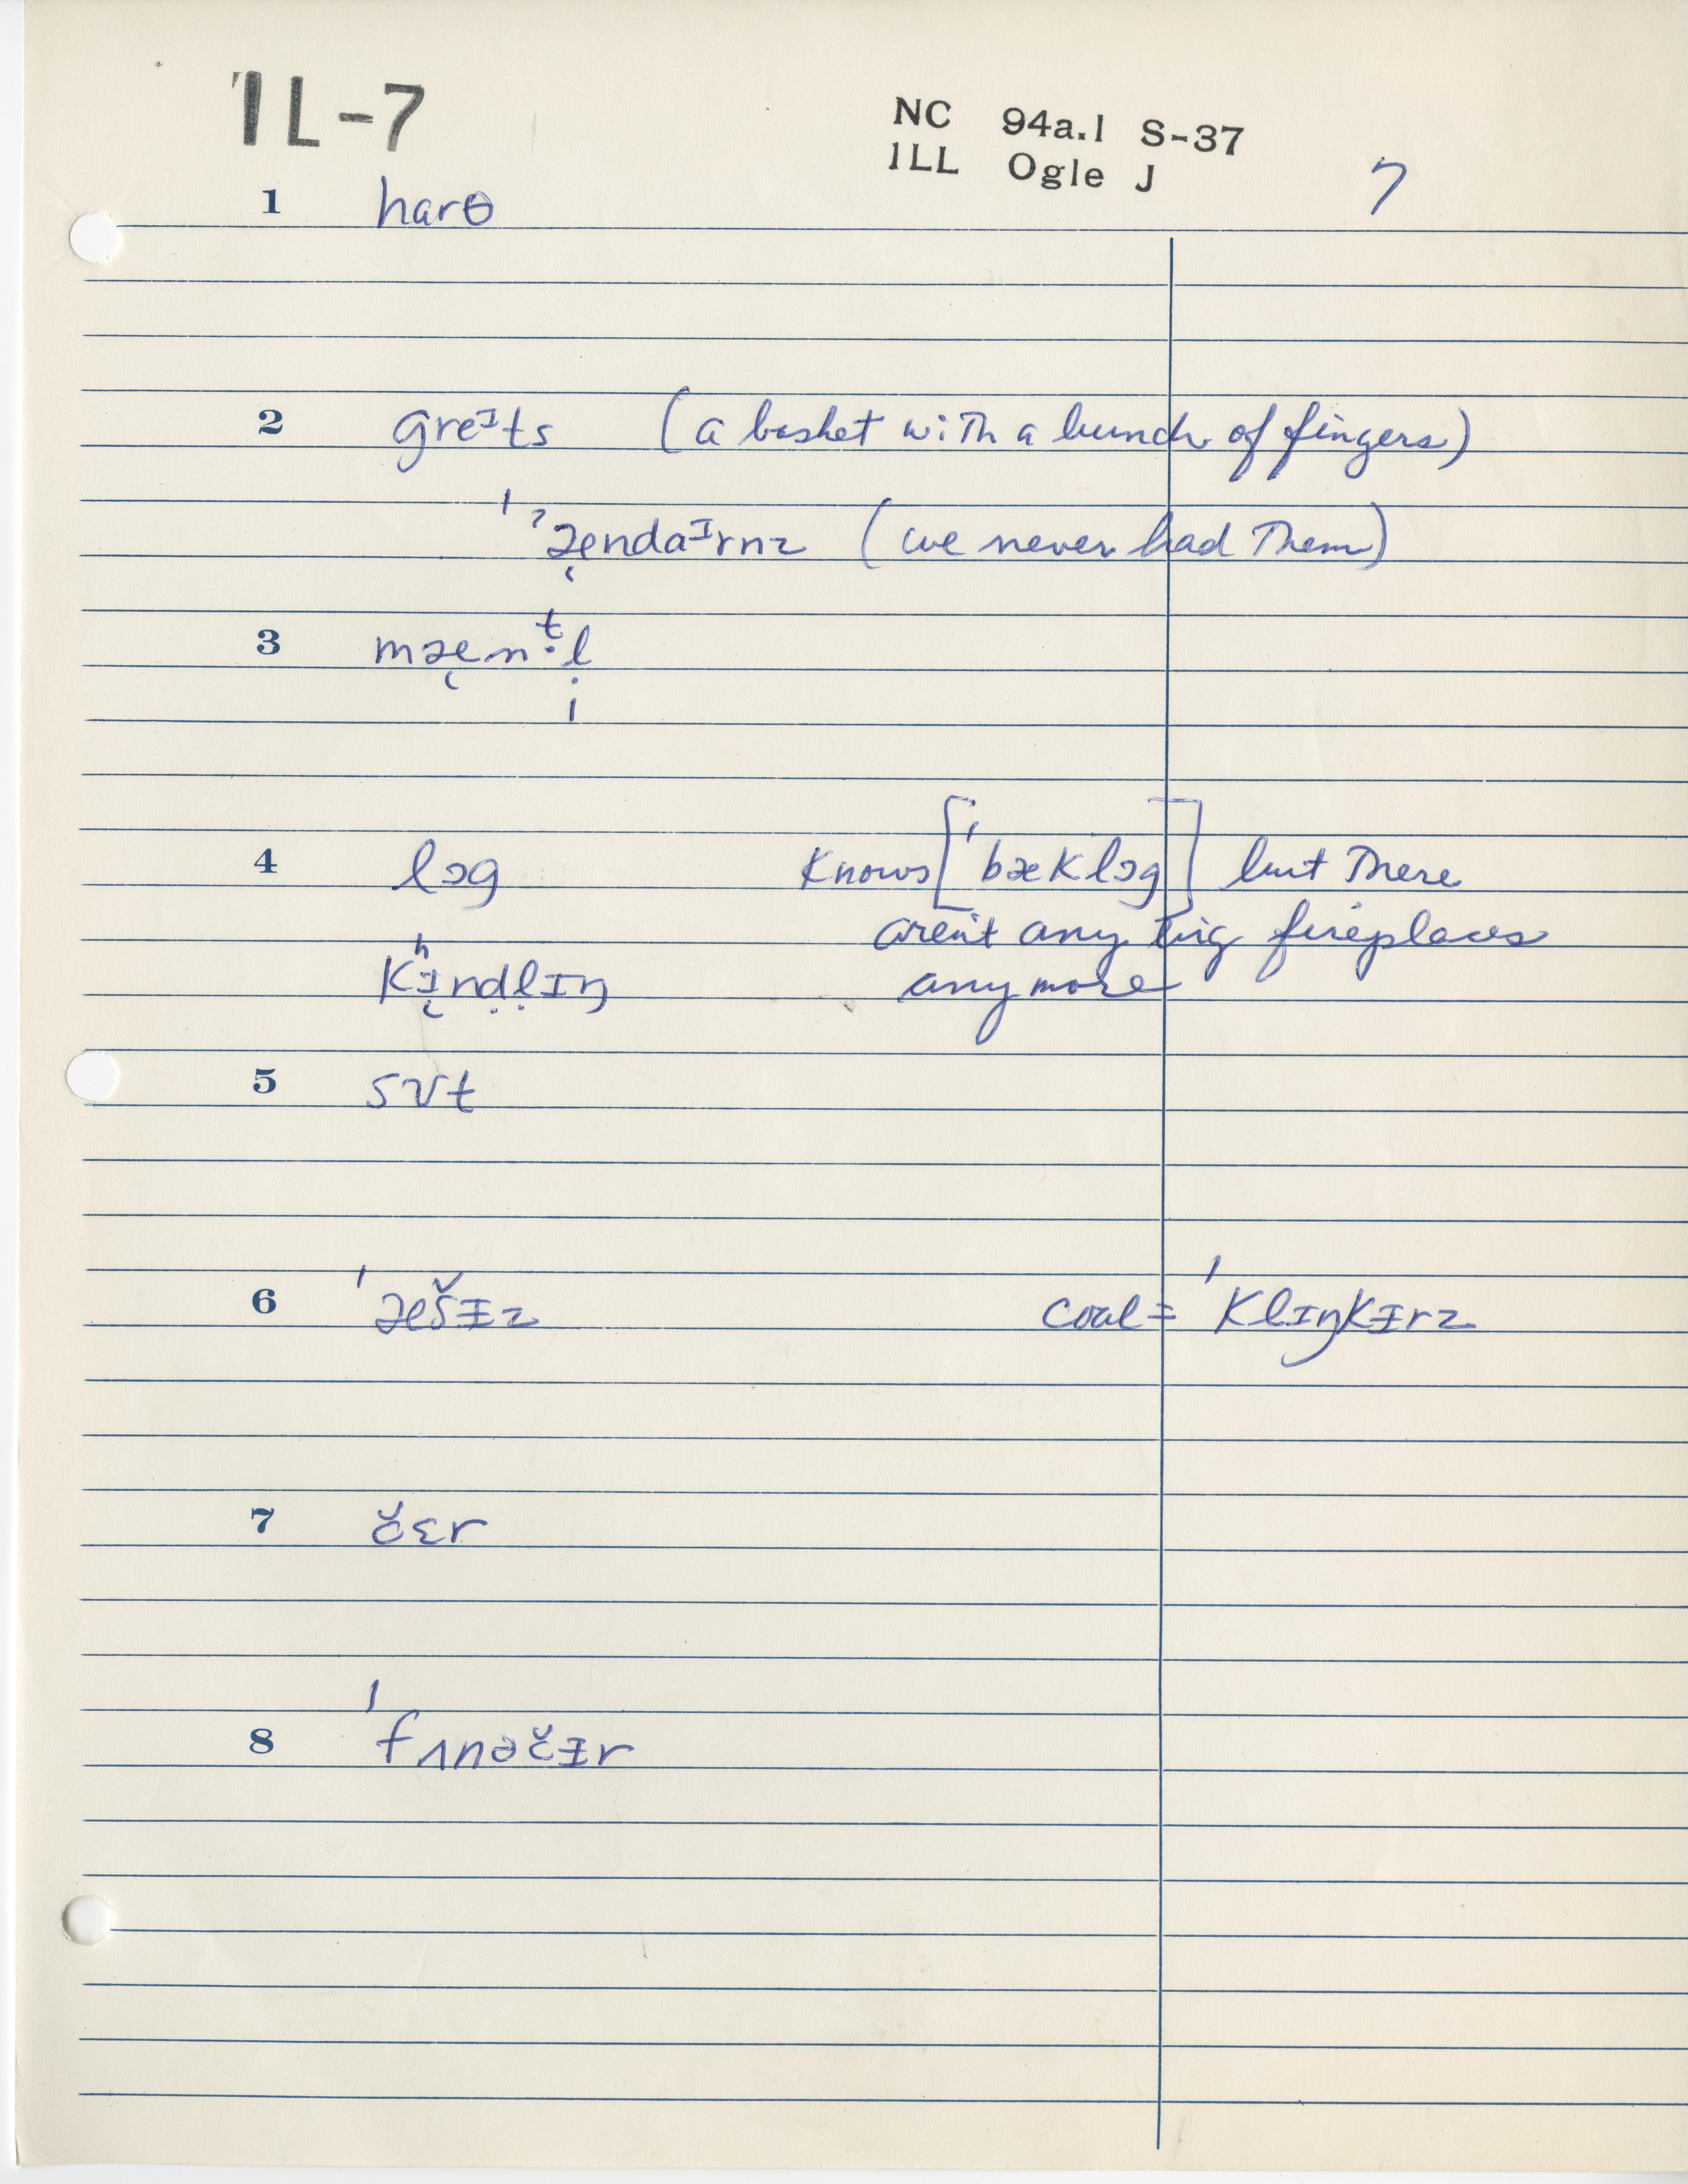 IL-7
NC 94a.1 S-37
ILL Ogle J
7
1 harθ
2 greᴵts (a basket with a bunch of fingers)
ˈˀæ̨ndaᴵrnz (we never had them)
3 mæ̨nᵗ̣ḷ
4 lɔg knows [ˈbæklɔg] but there
aren't any big fireplaces
kʰɪ̨nḍḷɪŋ anymore
5 sʊt
6 ˈæšɪ̵z coal = ˈklɪŋkɪ̵rz
7 čɛr
8 ˈfʌnəčɪ̵r